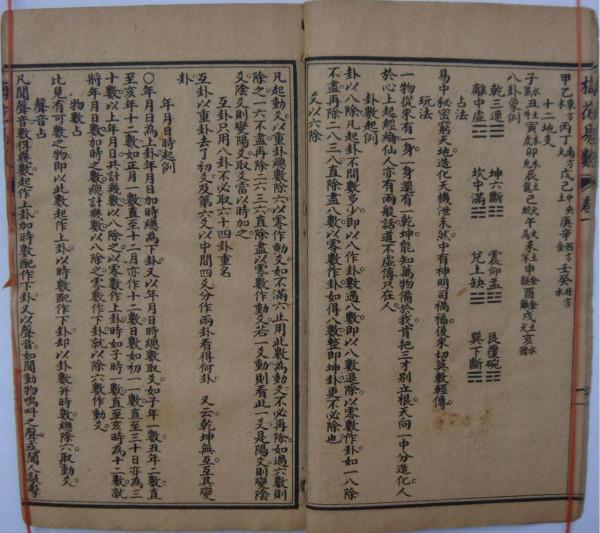 梅花易數 卷一
甲乙木東方丙丁火南方戊己土中央庚辛金西方壬癸水北方
十二地支
子水鼠丑土牛寅木虎卯木兔辰土龍巳火蛇午火馬未土羊申金猴酉金雞戌土犬亥水豬
八卦象例
乾三連☰ 坤六斷☷ 震仰盂☳ 艮覆碗☶
離中虛☲ 坎中滿☵ 兌上缺☱ 巽下斷☴
占法
易中秘密窮天地造化天機泄未然中有神明司禍福後來切莫教輕傳
玩法
一物從來有一身一身還有一乾坤能知萬物備於我肯把三才別立根天向一中分造化人
於心上起經綸仙人亦有兩般話道不虛傳只在人
卦數起例
卦以八除凡起卦不問數多少即以八作卦數過八數即以八數退除以零數作卦如一八除
不盡再除二八三八直除盡八數以零數作卦如得八數整即坤卦更不必除也
爻以六除
凡起動爻以重卦總數除六以零作動爻如不滿六止用此數為動爻不必再除如過六數則
除之一六不盡再除二六三六直除盡以零數作動爻若一爻動則看此一爻是陽爻則變陰
爻陰爻則變陽爻取爻當以時加之
互卦只用八卦不必取六十四卦重名
互卦以重卦去了初爻及第六爻以中間四爻分作兩卦看得何卦 又云乾坤無互互其變
卦
年月日時起例
○年月日為上卦年月日加時總為下卦又以年月日時總數取爻如子年一數丑年二數直
至亥年十二數如正月一數直至十二月亦作十二數日數如初一一數直至三十日亦為三
十數以上年月日共計幾數以八除之以零數作上卦時如子時一數直至亥時為十二數就
將年月日數加時之數總計幾數以八除之零數作下卦就以除六數作動爻
物數占
比見有可數之物即以此數起作上卦以時數配作下卦却以卦數并時數總除六取動爻
聲音占
凡聞聲音數得幾數起作上卦加時數配作下卦又以聲音如聞動物鳴叫之聲或聞人敲擊